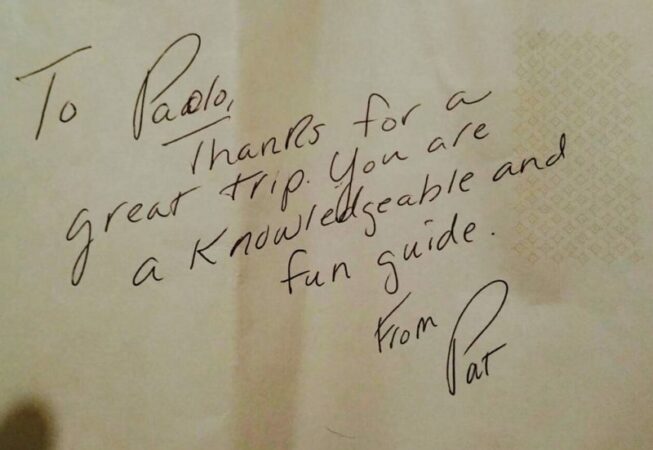 To Paolo,
Thanks for a
great trip. You are
a knowledgeable and
fun guide.
From
Pat